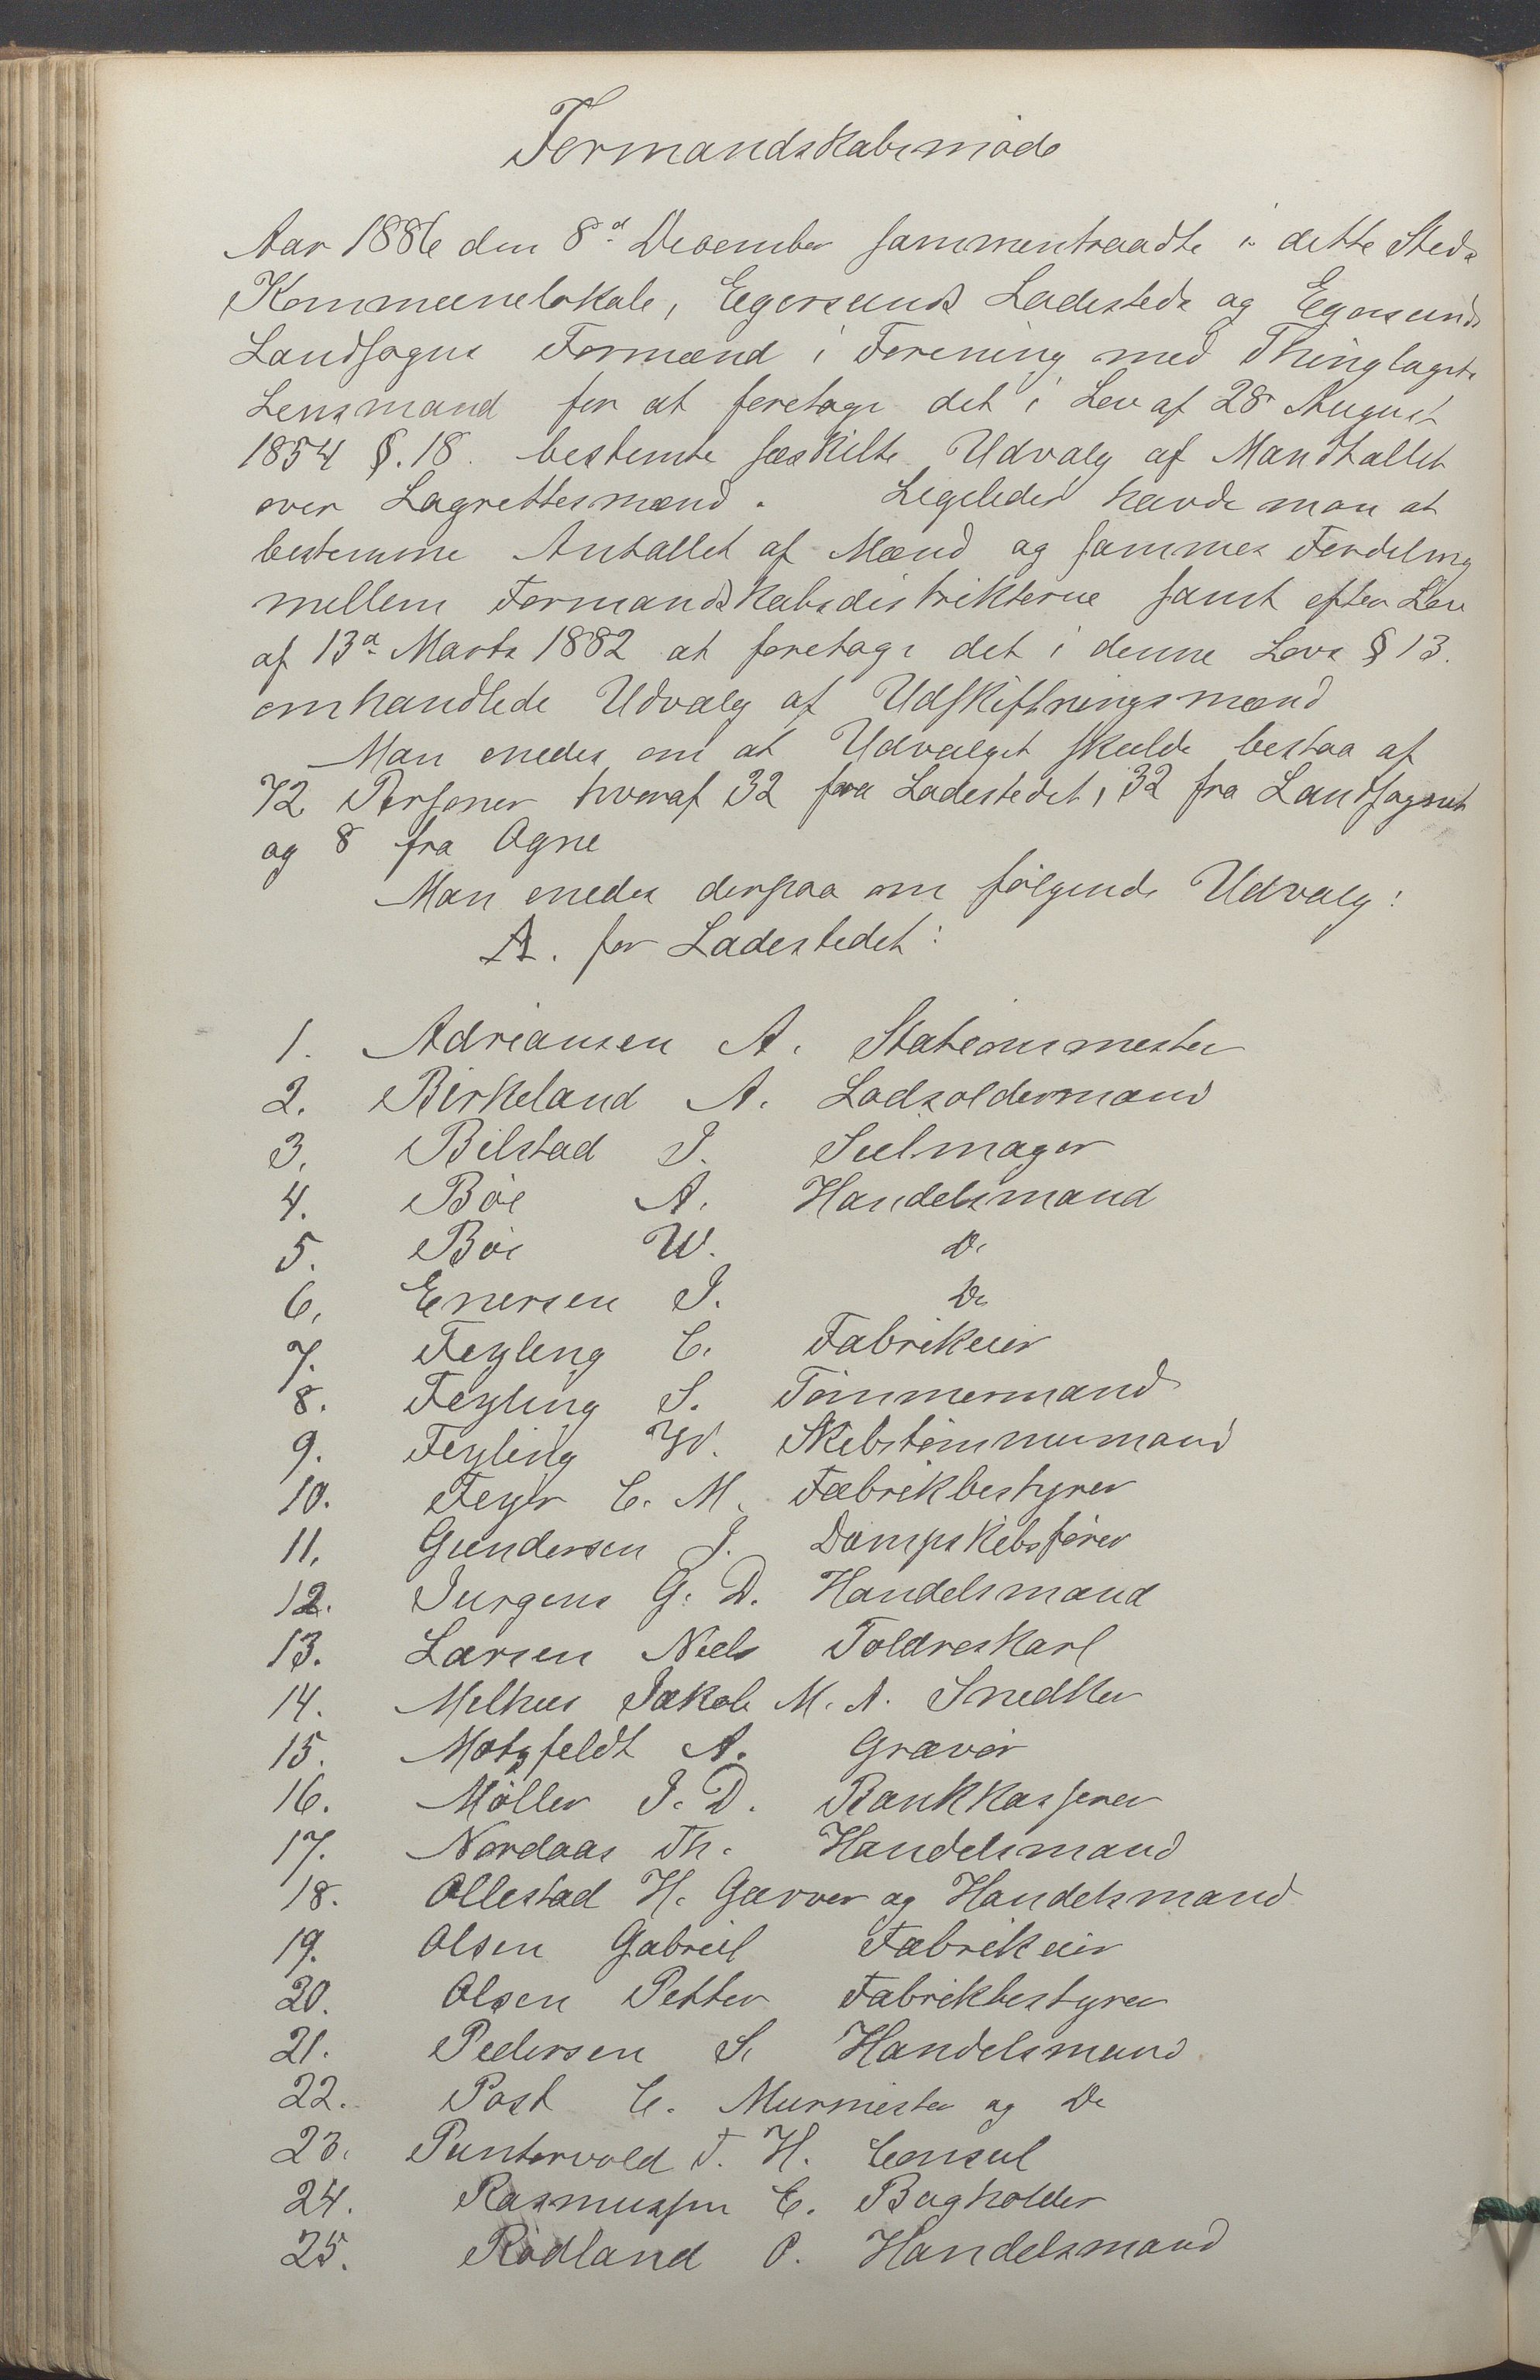 Formandskabsmøde
Aar 1886 den 8d December sammentraadte i dette Steds
Kommunelokale, Egersunds Ladesteds og Egersunds
Landsogns Formænd i Forening med Thinglagets
Lensmand for at foretage det i Lov af 28 August
1854 §. 18. bestemte særskilte Udvalg af Mandtallet
over Lagrettesmænd. Ligeledes havde man at
bestemme Antallet af Mænd og sammes Fordeling
mellem Formandskabsdistrikterne samt efter Lov
af 13d Marts 1882 at foretage det i denne Lovs § 13.
omhandlede Udvalg af Udskiftningsmænd
Man enedes om at Udvalget skulde bestaa af
72 Personer hvoraf 32 fra Ladestedet, 32 fra Landsognet
og 8 fra Ogne
Man enedes derpaa om følgende Udvalg:
A. for Ladestedet:
1. Adriansen A. Stationsmester
2. Birkeland A. Lodsoldermand
3. Bilstad J. Seilmager
4. Böe A. Handelsmand
5. Böe W. Do
6. Enersen J. Do
7. Feyling C. Fabrikeier
8. Feyling S. Tømmermand
9. Feyling W. Skibstømmermand
10. Feyer C. M. Fabrikbestyrer
11. Gundersen J. Dampskibsfører
12. Jurgens G. D. Handelsmand
13. Larsen Niels Toldreskarl
14. Melhus Jakob M. A. Snedker
15. Motzfeldt A. Gravør
16. Møller J. D. Bankkasserer
17. Nordaas Th. Handelsmand
18. Ollestad H. Garver og Handelsmand
19. Olsen Gabriel Fabrikeier
20. Olsen Petter Fabrikbestyrer
21. Pedersen S. Handelsmand
22. Post C. Murmester og Do
23. Puntervold T. H. Consul
24. Rasmussen C. Bogholder
25. Rödland O. Handelsmand